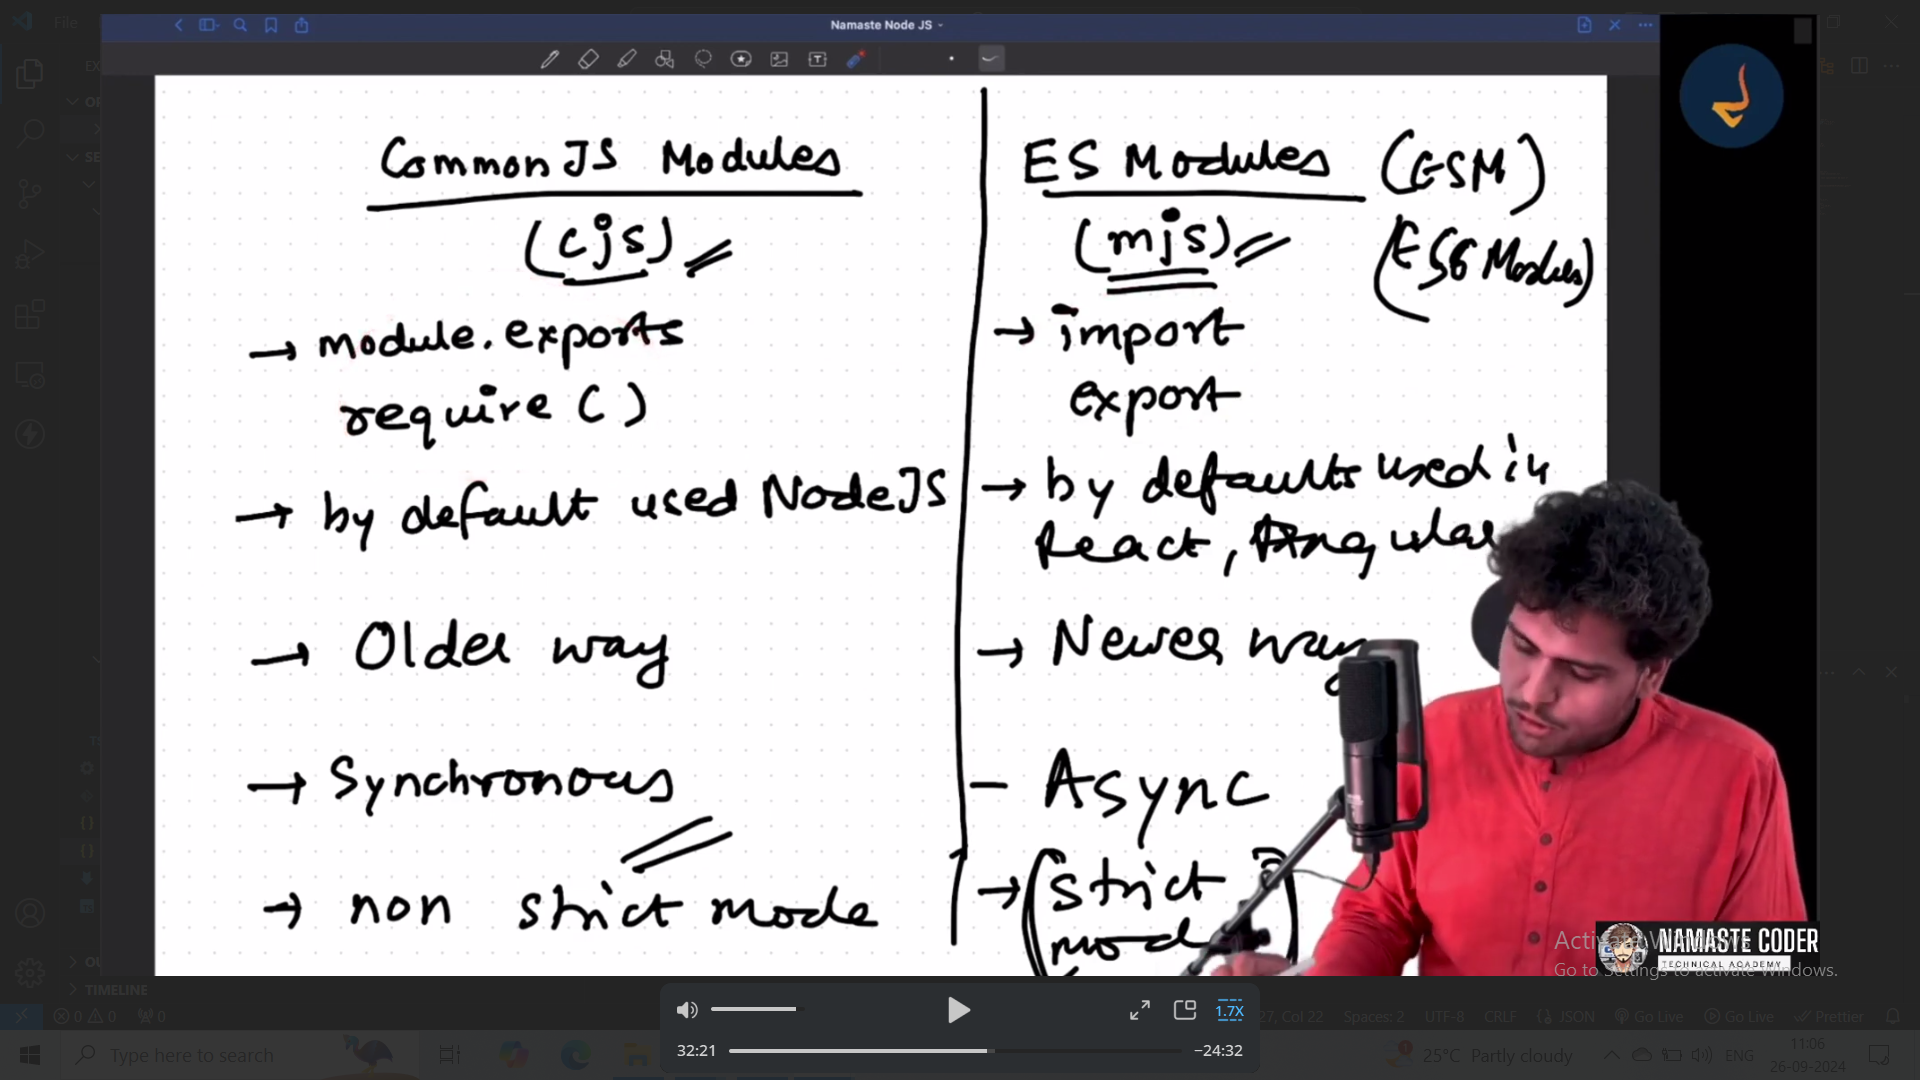 File
Namaste Node JS
CommonJS Modules
(cjs)
→ module.exports
require ( )
→ by default used NodeJS
→ Older way
→ Synchronous
→ non strict mode
ES Modules (ESM)
(mjs) (ES6 Modules)
→ import
export
→ by defaults used in
React, Angular
→ Newer way
- Async
→ (strict
mode
NAMASTE CODER
TECHNICAL ACADEMY
Activate Windows
Go to Settings to activate Windows.
TIMELINE
0 0 0
1.7X
27, Col 22 Spaces: 2 UTF-8 CRLF {} JSON Go Live Go Live Prettier
32:21
−24:32
Type here to search
25°C Partly cloudy
ENG
11:06
26-09-2024